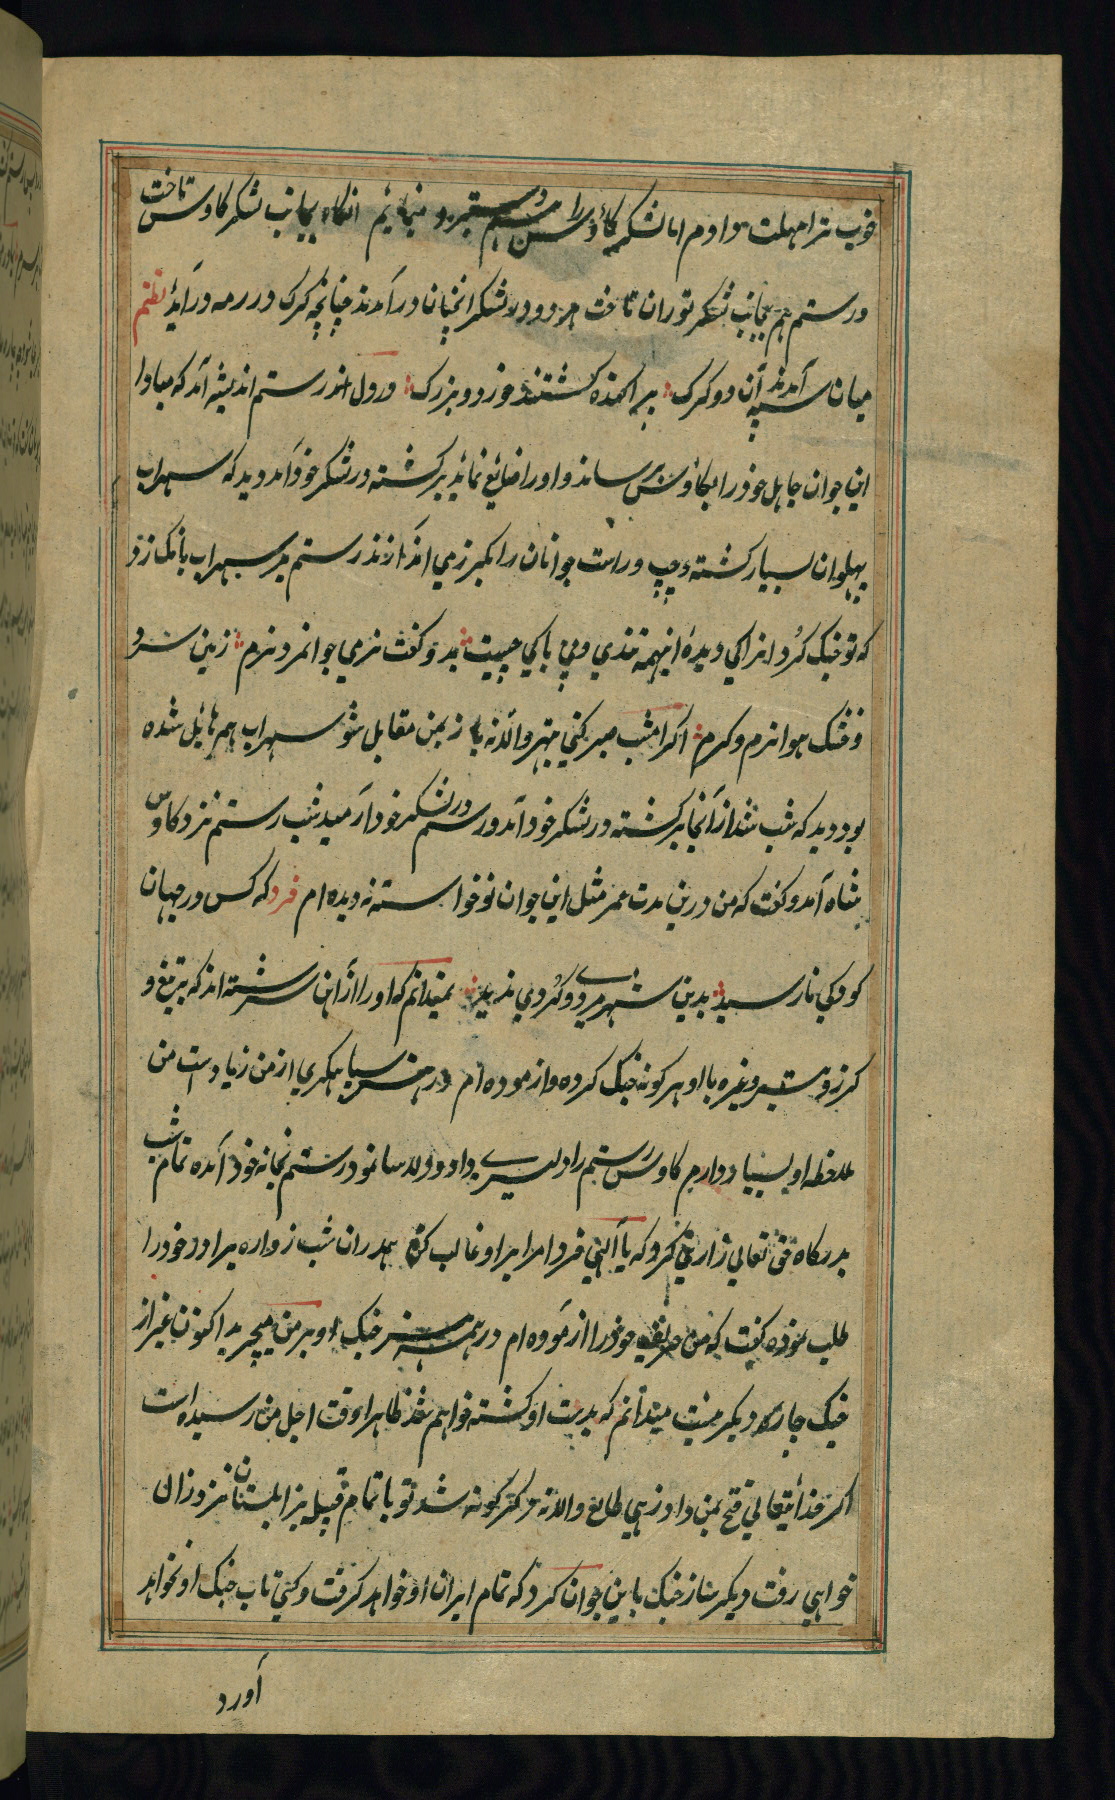 خوب ترا مهلت دادم اما لشکر کاؤس را هم دستبرد مینمایم انگاه بجانب لشکر کاوس تاخت
و رستم هم بجانب لشکر توران تاخت هر دو در لشکر انچنان در آمدند چنانچه کرک در رمه در آید نظم
میان سپه آمدند آن دو کرک پراکنده کشتند خورد و بزرک در دل اندر رستم اندیشه آمد که مبادا
این جوان جاهل خود را بکاؤس رساند و او را ضائع نماید برکشته در لشکر خود آمد دید که سهراب
پهلوان بسیار کشته و چپ و راست جوانان را بکرز می اندازند رستم بر سهراب بانک زد
که تو جنک کرد از کی دیدهٔ اینهمه تندی و بی باکی چیست بدو کفت نرمی جوانمرد نرم زمین سرد
و خشک هوا نرم و کرم اکر امشب صبر کنی بهتر والا نه باز بمن مقابل شو سهراب هم مایل شده
بود دید که شب شد از آنجا برکشته در لشکر خود آمد و رستم در لشکر خود آرمید شب رستم نزد کاوس
شاه آمد و کفت که من درین مدت عمر مثل این جوان نوخواسته ندیده ام فرد که کس در جهان
کودکی نارسید بدین شیرمردی و کردی ندید نمیدانم که او را از آهن سرشته اند که بتیغ و
کرز و تبر و غیره با او هرکونه جنک کرده و ازموده ام در هنر سپاهکری از من زیاد است من
ملاحظه او بسیار دارم کاوس رستم را دلیری داد و دلاسا نمود رستم بخانه خود آمده تمام شب
بدرکاه حق تعالی زاری کرد که یا الهی فردا مرا بر او غالب کن همدران شب زواره برادر خود را
طلب نموده کفت که من حریف خود را ازموده ام در همه هنر جنک او بر من میچربد اکنون غیر از
جنک چاره دیکر نیست میدانم که بدست او کشته خواهم شد ظاهرا وقت اجل من رسیده است
اکر خدایتعالی فتح بمن داد زهی طالع والا نه دیکر کونه شد تو با تمام قبیله بزابلستان نزد زال
خواهی رفت دیکر ساز جنک باین جوان کرد که تمام ایران او خواهد کرفت و کسی تاب جنک او نخواهد
آورد